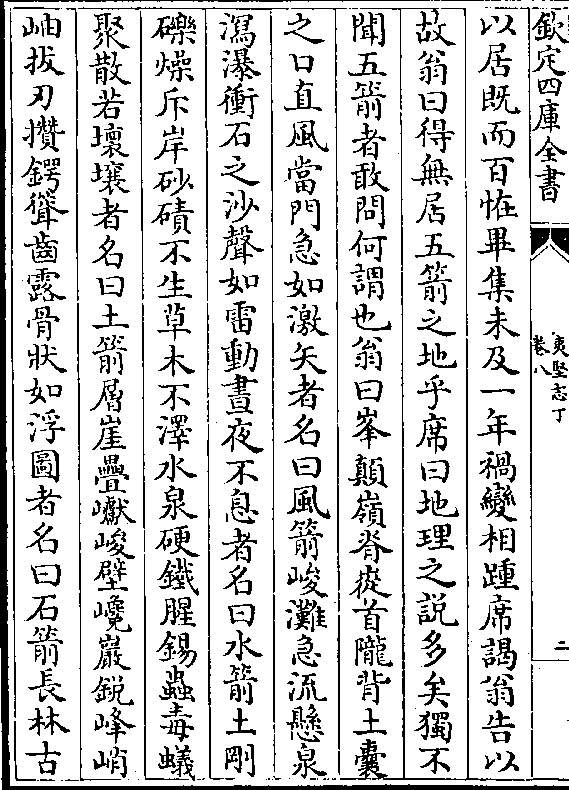 欽定四庫全書
夷堅志丁
卷八
二
以居既而百恠畢集未及一年禍變相踵席謁翁告以
故翁曰得無居五箭之地乎席曰地理之説多矣獨不
聞五箭者敢問何謂也翁曰峯顛嶺脊嵸首隴背土囊
之口直風當門急如激矢者名曰風箭峻灘急流懸泉
瀉瀑衝石之沙聲如雷動晝夜不息者名曰水箭土剛
礫燥斥岸砂磧不生草木不澤水泉硬鐵腥錫蟲毒蟻
聚散若壞壤者名曰土箭層崖疊巘峻壁巉巖鋭峰峭
岫拔刃攢鍔聳齒露骨狀如浮圖者名曰石箭長林古